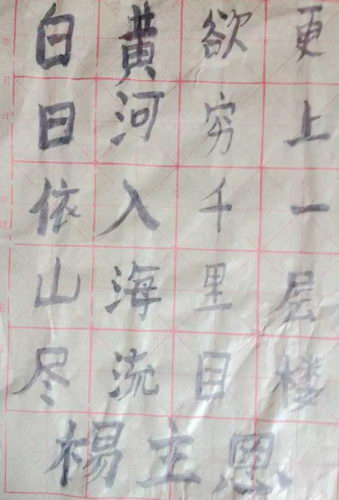 白日依山尽
黄河入海流
欲穷千里目
更上一层楼
杨主恩